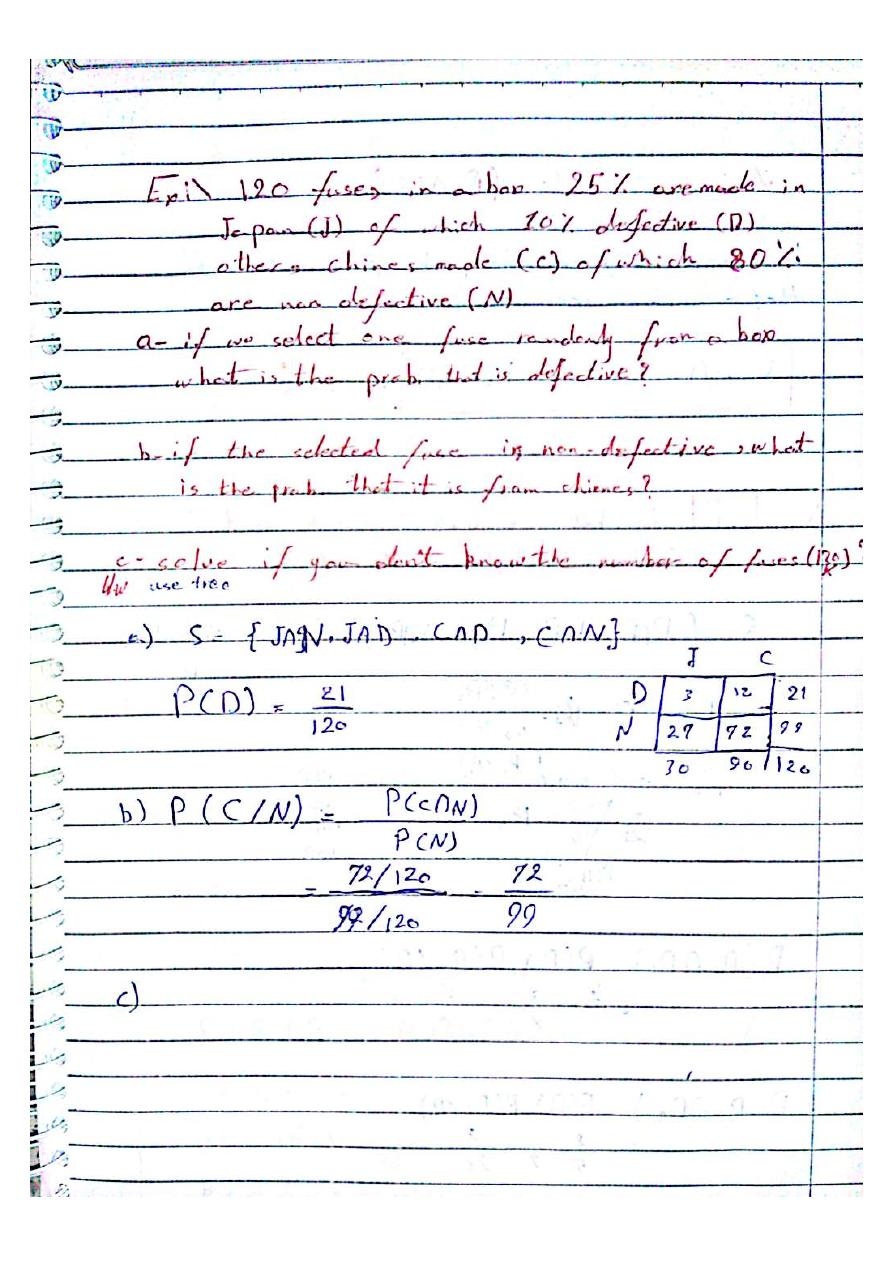 Exi\ 120 fuses in a box 25% are made in
Japan (J) of which 10% defective (D)
others chines made (C) of which 80%
are non defective (N)
a- if we select one fuse randomly from a box
what is the prob. that is defective?
b- if the selected fuse is non-defective, what
is the prob. that it is from chienes?
c- solve if you don't know the number of fuses (120)
Hw use tree
a) S = {J∩N, J∩D, C∩D, C∩N}
J C
P(D) = 21/120
D 3 12 21
N 27 72 99
30 90 120
b) P(C/N) = P(C∩N)/P(N)
= 72/120 / 99/120 = 72/99
c)